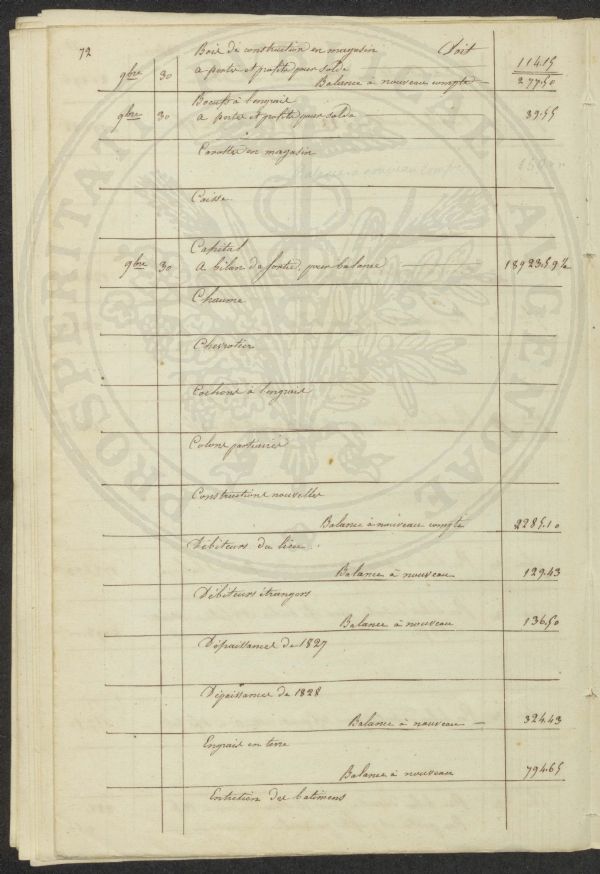 72
Bois de construction en magasin Doit
9bre 30 a pertes et profits pour solde 114.15
Balance à nouveau compte 277.50
Boeufs à l'engrais
9bre 30 a pertes et profits pour solde 39.55
Carottes en magasin
Balance à nouveau compte
Caisse
Capital
9bre 30 A bilan de sortie, pour balance 18923.59½
Chaume
Chevrotin
Cochons à l'engrais
Colons partiaires
Constructions nouvelles
Balance à nouveau compte 2285.10
Débiteurs du lieu
Balance à nouveau 129.43
Débiteurs étrangers
Balance à nouveau 136.50
Dépaissances de 1827
Dépaissances de 1828
Balance à nouveau 324.43
Engrais en terre
Balance à nouveau 794.65
Entretien des batimens
PROSPERITATI AGENDAE